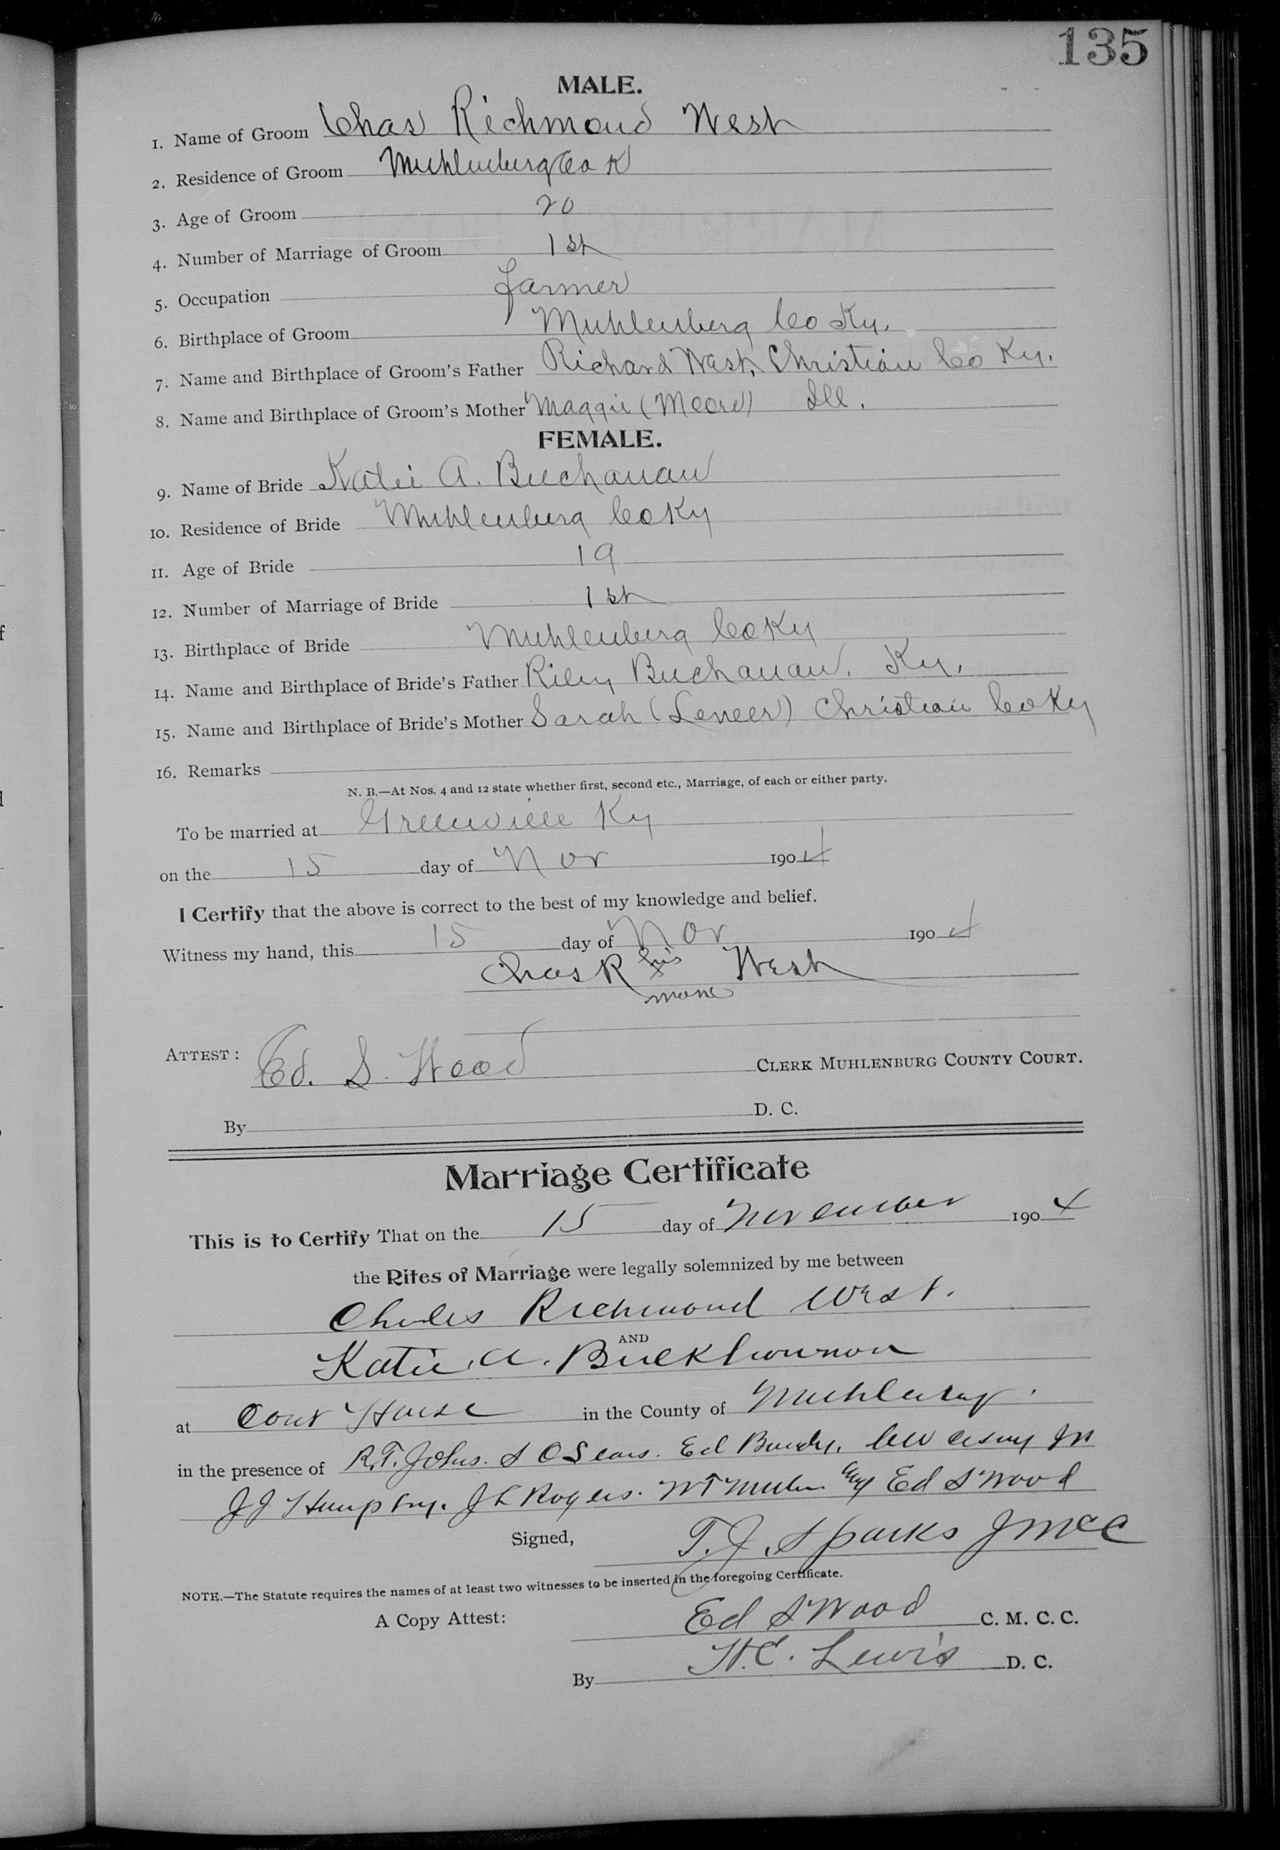 135
MALE.
1. Name of Groom Chas Richmond West
2. Residence of Groom Muhlenburg Co K
3. Age of Groom 20
4. Number of Marriage of Groom 1st
5. Occupation farmer
6. Birthplace of Groom Muhlenberg Co Ky.
7. Name and Birthplace of Groom's Father Richard West, Christian Co Ky.
8. Name and Birthplace of Groom's Mother Maggie (Moore) Ill.
FEMALE.
9. Name of Bride Katie A. Buchanan
10. Residence of Bride Muhlenburg Co Ky
11. Age of Bride 19
12. Number of Marriage of Bride 1st
13. Birthplace of Bride Muhlenburg Co Ky
14. Name and Birthplace of Bride's Father Riley Buchanan. Ky.
15. Name and Birthplace of Bride's Mother Sarah Christian Co Ky
16. Remarks
N. B.—At Nos. 4 and 12 state whether first, second etc., Marriage, of each or either party.
To be married at Greenville Ky
on the 15 day of Nov 1904
I Certify that the above is correct to the best of my knowledge and belief.
Witness my hand, this 15 day of Nov 1904
Chas R his x mark West
ATTEST: Ed. S. Wood CLERK MUHLENBURG COUNTY COURT.
By D. C.
Marriage Certificate
This is to Certify That on the 15 day of November 1904
the Rites of Marriage were legally solemnized by me between
Charles Richmond West.
AND
Katie. A.
at Court House in the County of Muhlenburg.
in the presence of R. T. Johns. Ed
J J Humphrey. J L Rogers. Ed S Wood
Signed, T. J. Sparks J M C C
NOTE.—The Statute requires the names of at least two witnesses to be inserted in the foregoing Certificate.
A Copy Attest: Ed S Wood C. M. C. C.
By H. C. Lewis D. C.